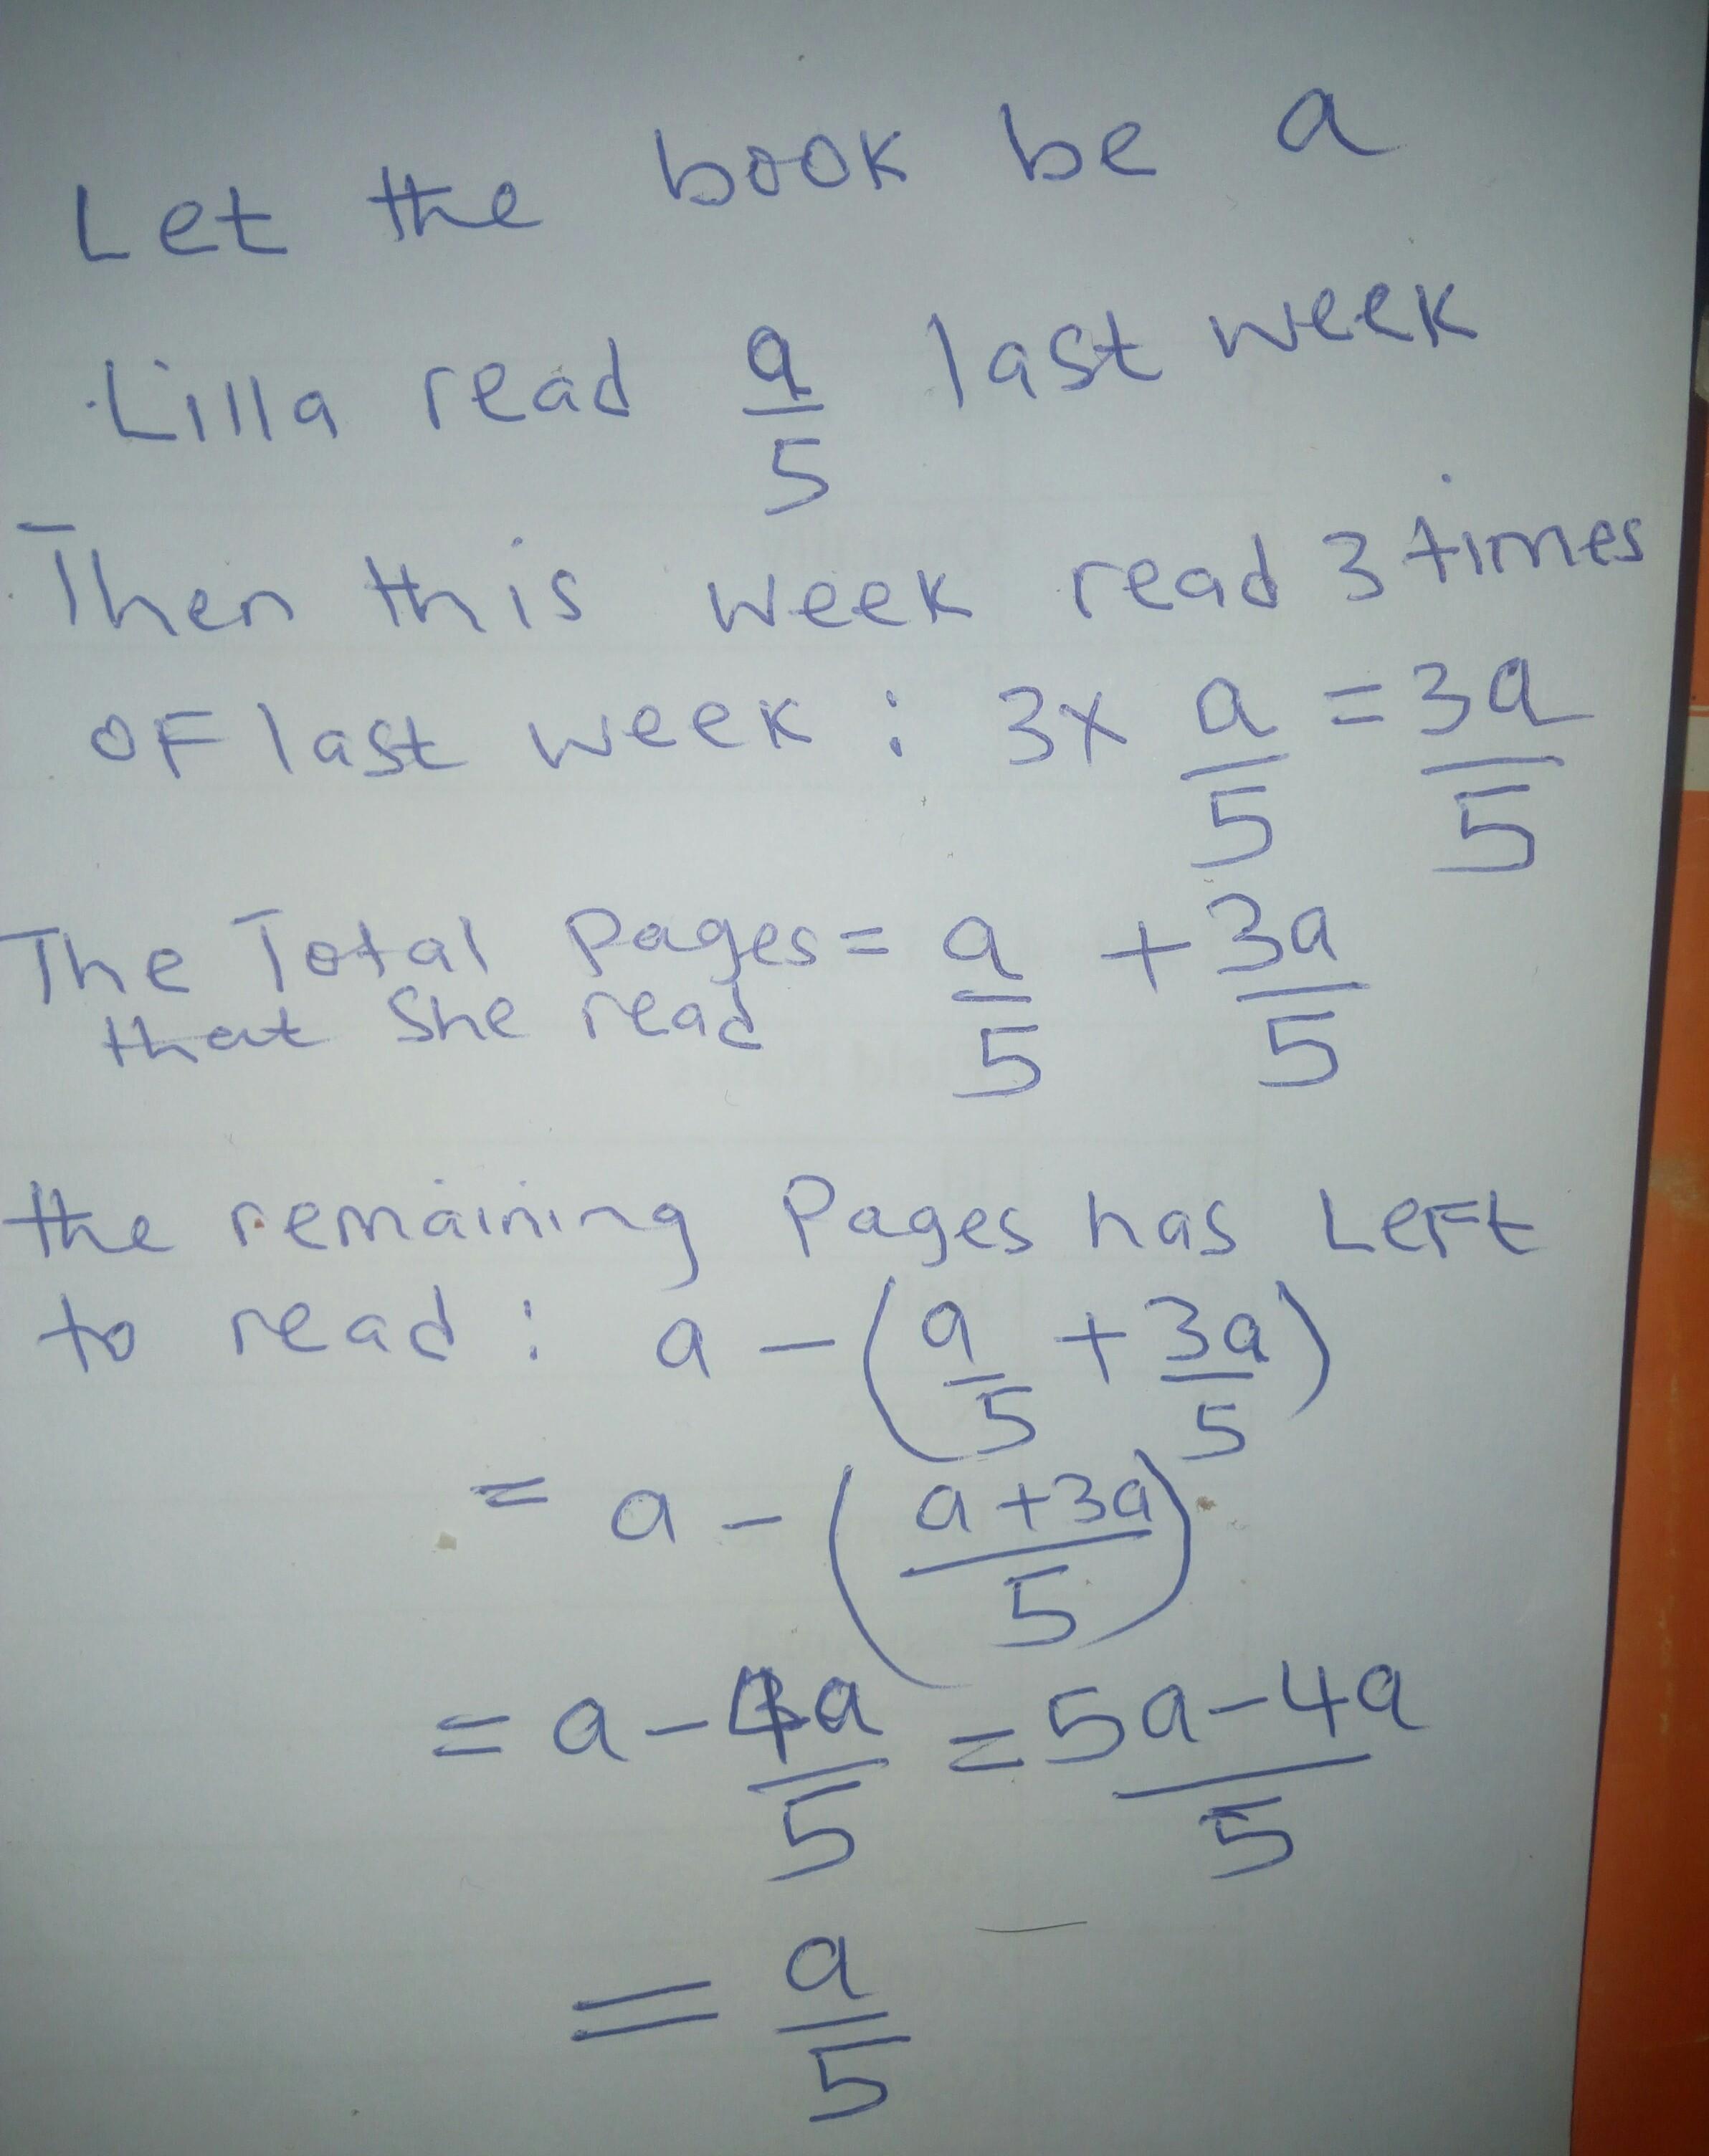 Let the book be a
Lilla read a/5 last week
Then this week read 3 times
of last week : 3 x a/5 = 3a/5
The Total Pages = a/5 + 3a/5
that She read
the remaining Pages has Left
to read : a - (a/5 + 3a/5)
= a - (a+3a/5)
= a - 4a/5 = 5a-4a/5
= a/5